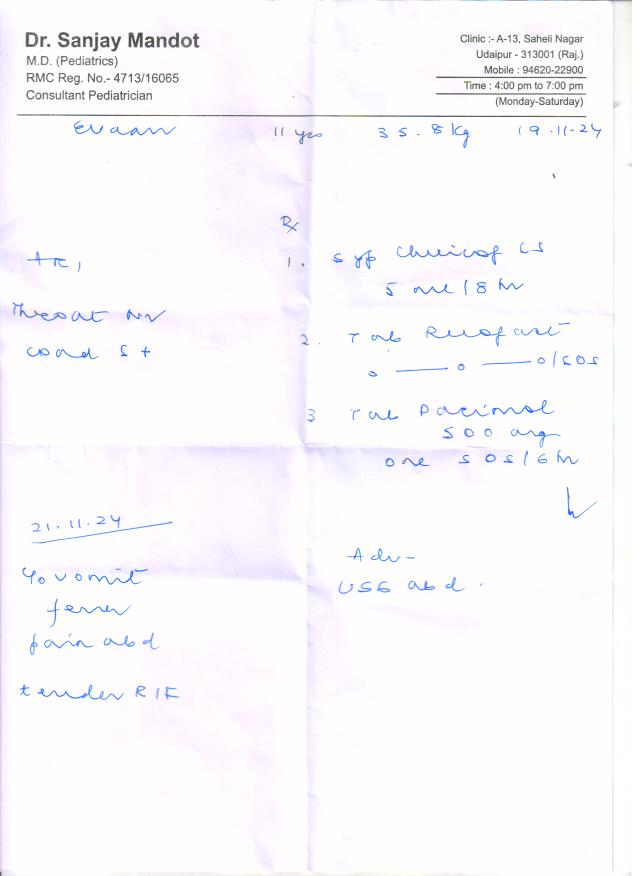 Dr. Sanjay Mandot
M.D. (Pediatrics)
RMC Reg. No.- 4713/16065
Consultant Pediatrician
Clinic :- A-13, Saheli Nagar
Udaipur - 313001 (Raj.)
Mobile : 94620-22900
Time : 4:00 pm to 7:00 pm
(Monday-Saturday)
Evaan 11 yrs 35.8 kg 19.11.24
Rx
1. Syp CS
5 ml / 8 hr
Throat
2. Tab
S+
o — o — o/SOS
3 Tab Pacimol
500 mg
one SOS/6 hr
21.11.24
Adv -
USG abd.
vomit
fever
pain abd
tender RIF